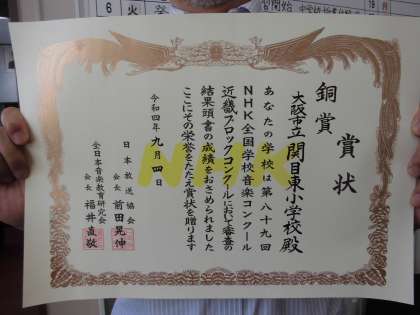 銅賞 賞状
大阪市立関目東小学校殿
あなたの学校は第八十九回
NHK全国学校音楽コンクール
近畿ブロックコンクールにおいて審査の
結果頭書の成績をおさめられました
ここにその栄誉をたたえ賞状を贈ります
令和四年九月四日
日本放送協会
会長 前田晃伸
全日本音楽教育研究会
会長 福井直敬
NHK